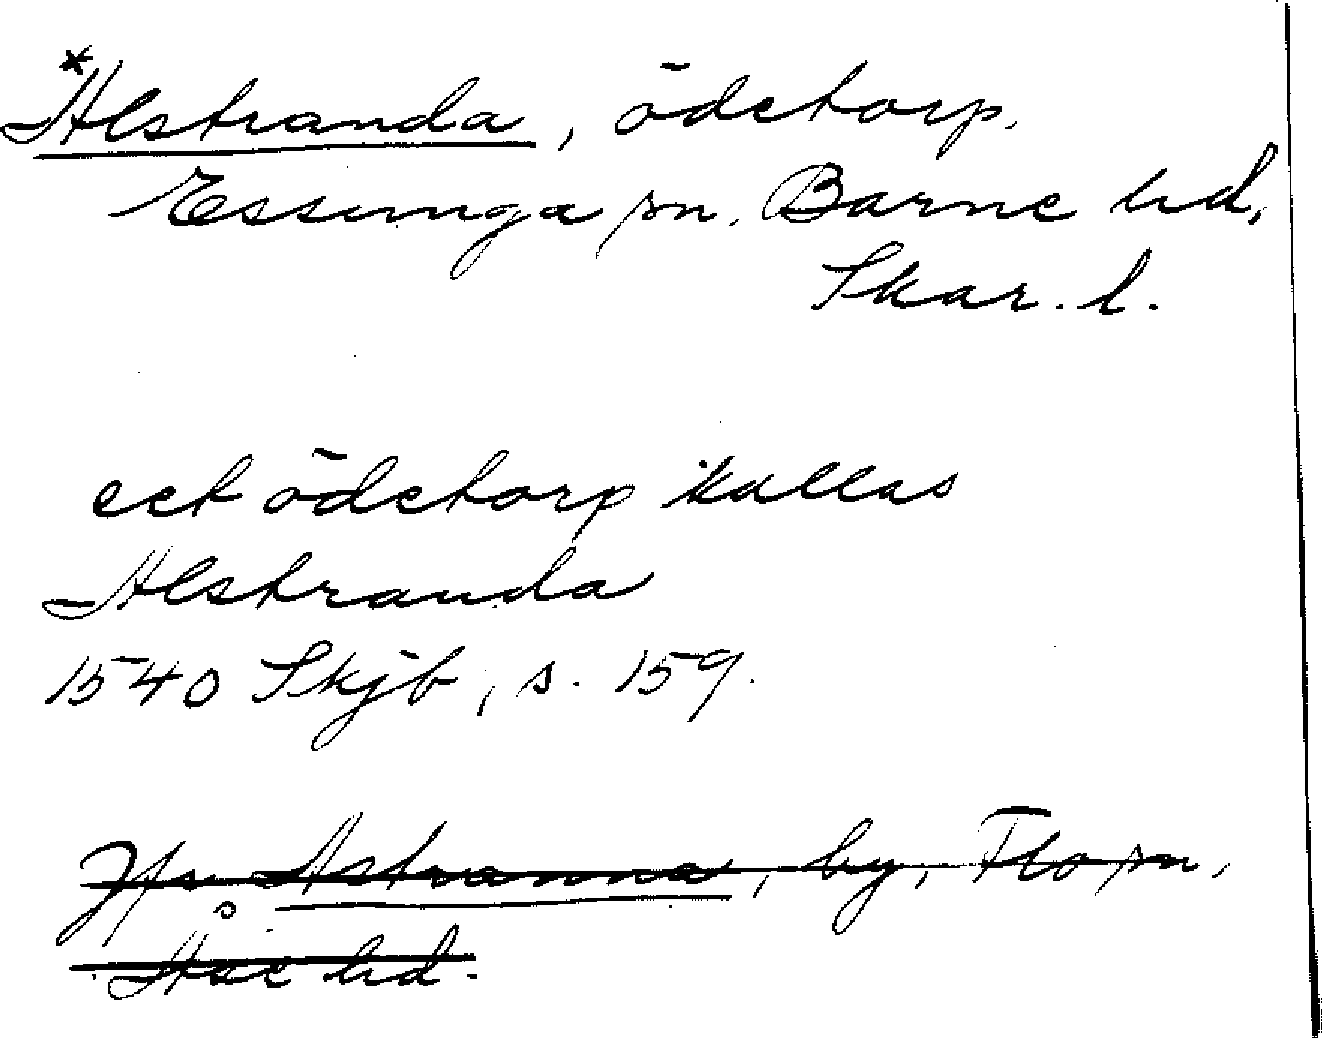 *Alstranda, ödetorp.
Essunga sn. Barne hd,
Skar. l.
eet ödetorp kallas
Alstranda
1540 Skjb, s. 159.
Jfr Astranna, by, Flo sn,
Åse hd.